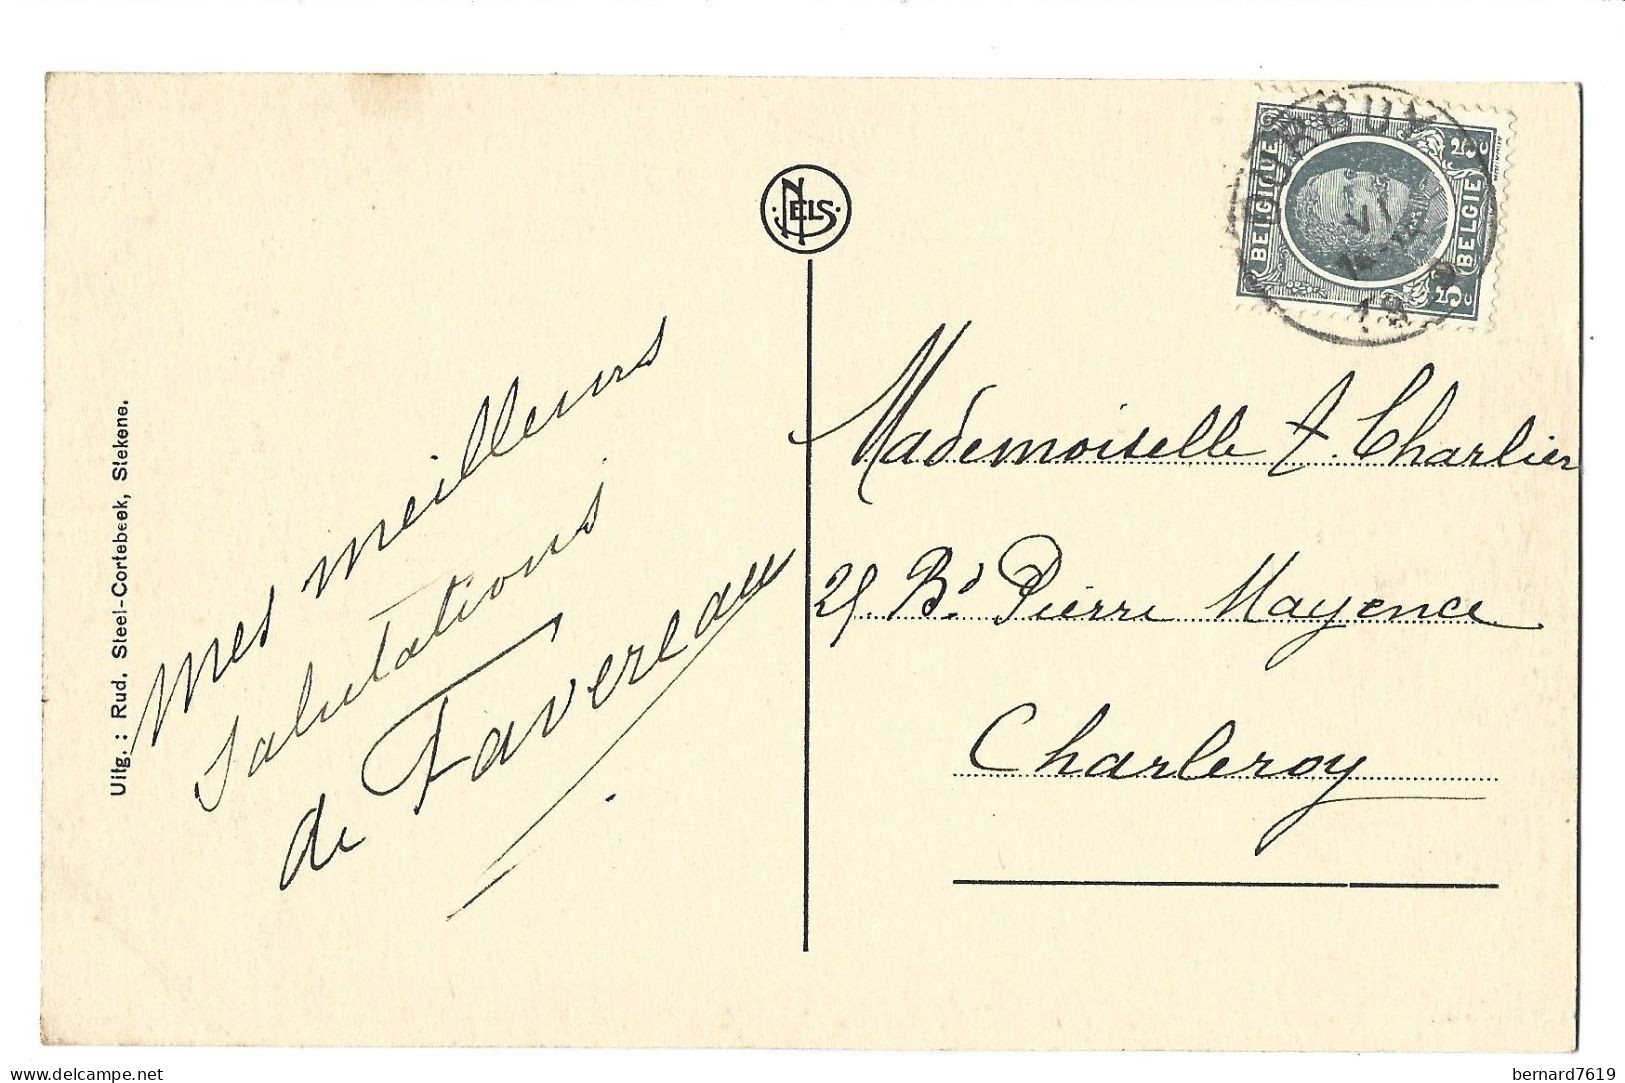 Uitg. : Rud. Steel-Cortebeek, Stekene.
Mes meilleurs
salutations
de Favereau
NELS
BELGIQUE
BELGIE
5c
5c
DURBUY
VI
Mademoiselle A. Charlier
25 Bd Pierre Mayence
Charleroy
delcampe.net
bernard7619